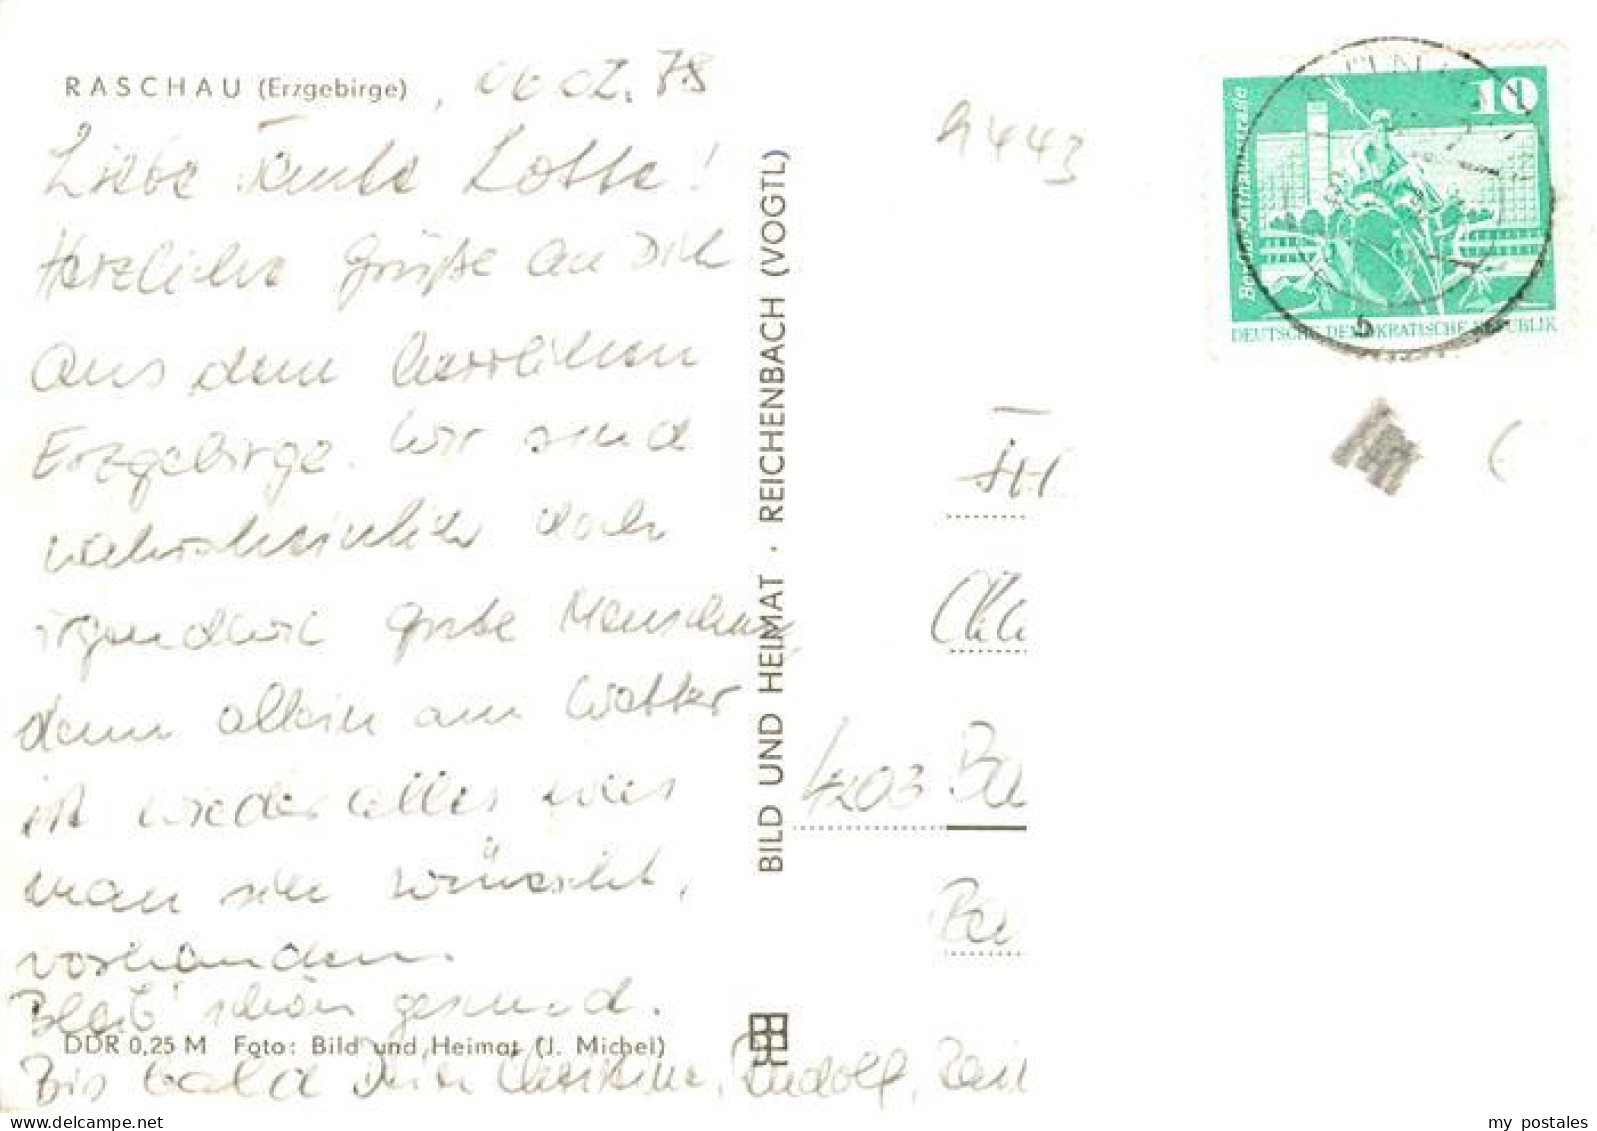 RASCHAU (Erzgebirge) , 06.02.78
Liebe Tante Lotte!
Herzliche Grüße an Dich
aus dem herrlichen
Erzgebirge. Wir sind
wahrscheinlich doch
irgendwie gute Menschen,
denn allein am Wetter
ist wieder alles was
man sich wünscht,
vorhanden.
Bleib' schön gesund.
DDR 0,25 M Foto: Bild und Heimat (J. Michel)
Bis bald Deine Christine, Rudolf,
BILD UND HEIMAT · REICHENBACH (VOGTL)
A443
10
DEUTSCHE DEMOKRATISCHE REPUBLIK
b
4203 Ba
my postales